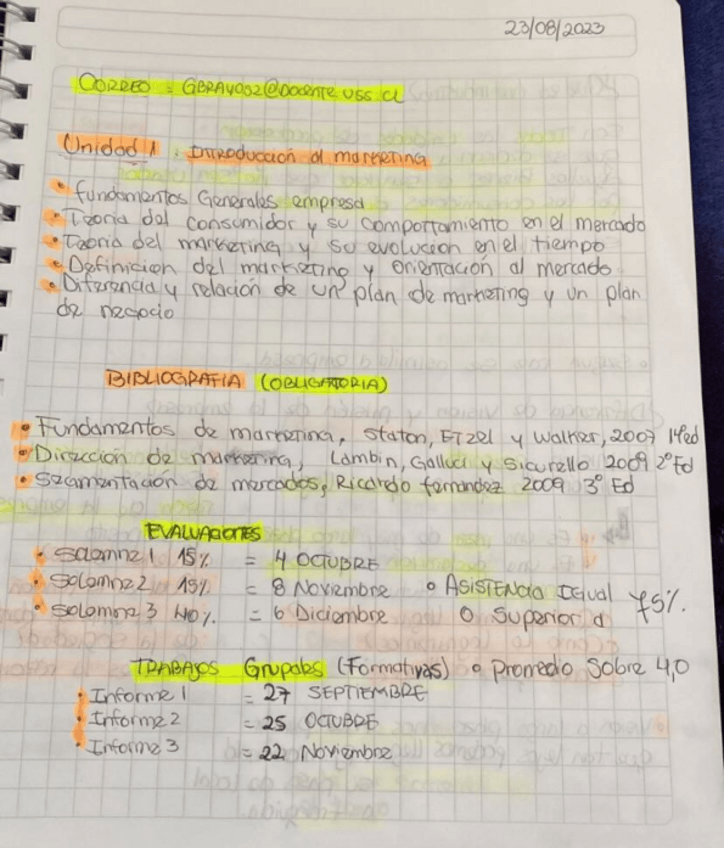 23/08/2023
CORREO = GBRAV002@Docente.uss.cl
Unidad 1 : Introducción al marketing
• fundamentos Generales empresa
• Teoria del consumidor y su comportamiento en el mercado
• Teoria del marketing y su evolucion en el tiempo
• Definicion del marketing y orientación al mercado
• Diferencia y relación de un plan de marketing y un plan
de negocio
BIBLIOGRAFIA (OBLIGATORIA)
• Fundamentos de marketing, Staton, Etzel y Walker, 2007 14ed
• Dirección de marketing, Lambin, Galluci y Sicurello 2009 2° Ed
• Segmentación de mercados, Ricardo fernandez 2009 3° Ed
EVALUACIONES
• Solemne 1 15% = 4 OCTUBRE
• Solemne 2 15% = 8 Noviembre o ASISTENCIA IGUAL 75%.
• Solemne 3 40% = 6 Diciembre O Superior a
TRABAJOS Grupales (Formativas) o promedio Sobre 4,0
• Informe 1 = 27 SEPTIEMBRE
• Informe 2 = 25 OCTUBRE
• Informe 3 = 22 Noviembre